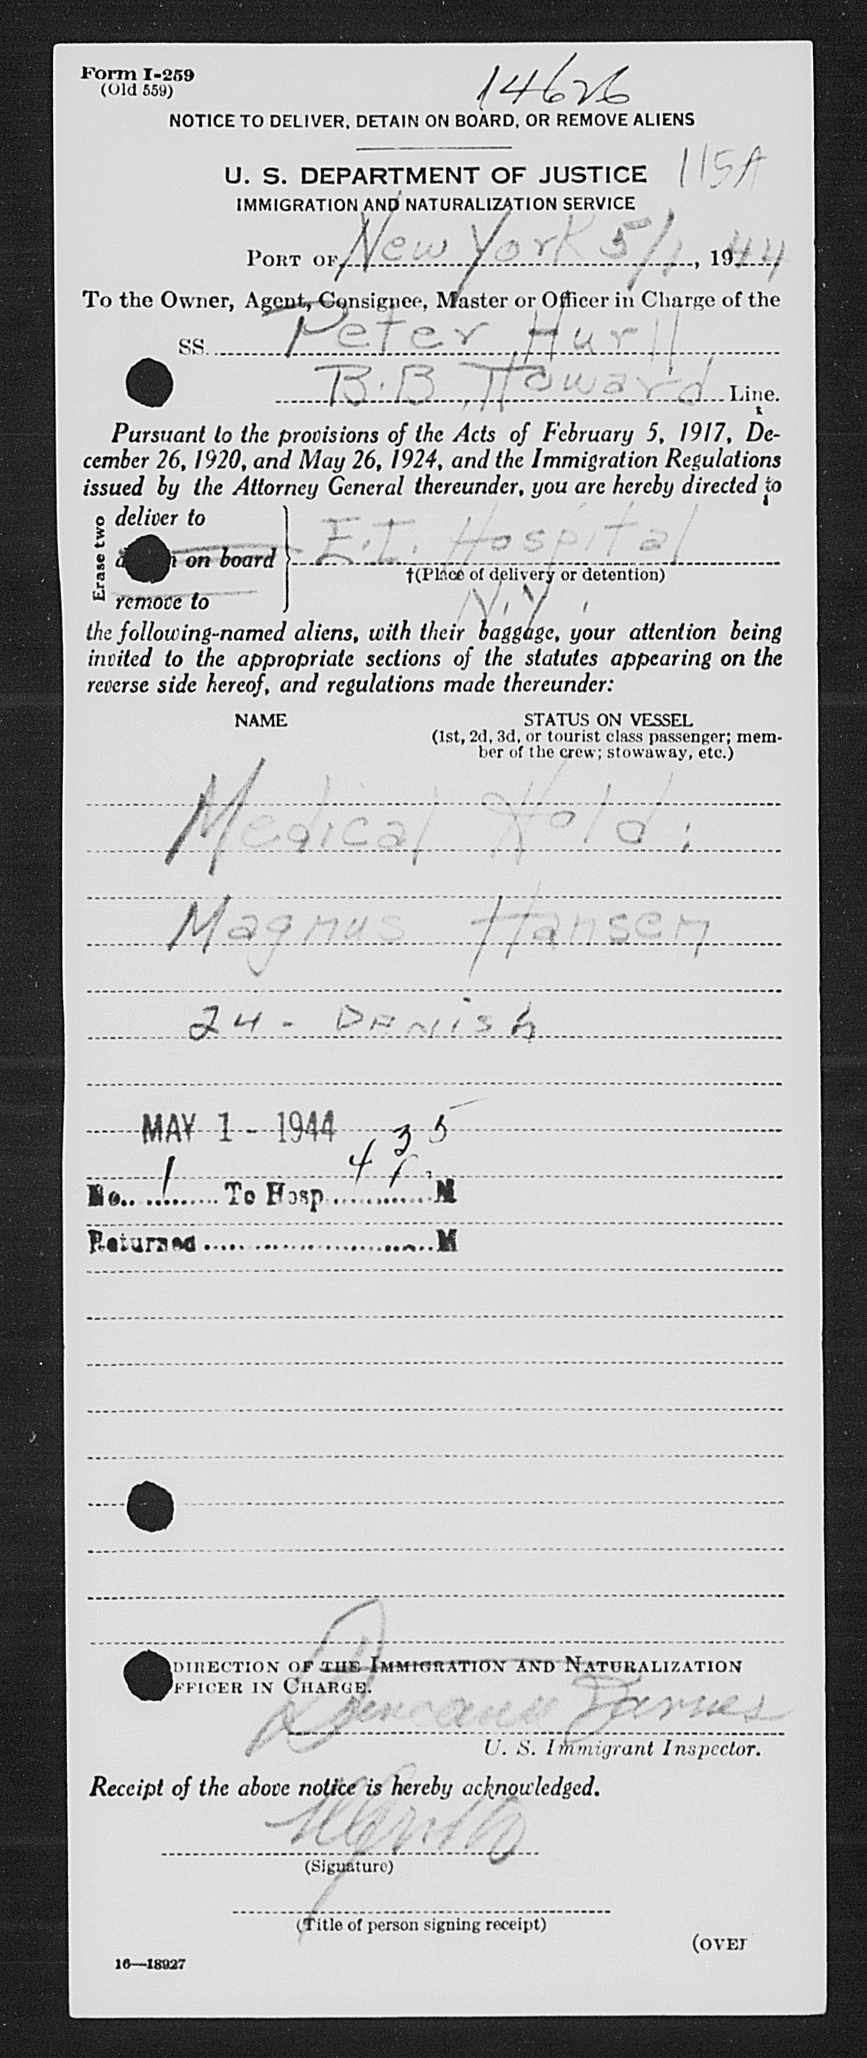 Form I-259
(Old 559)
14626
NOTICE TO DELIVER, DETAIN ON BOARD, OR REMOVE ALIENS
U. S. DEPARTMENT OF JUSTICE
115A
IMMIGRATION AND NATURALIZATION SERVICE
PORT OF New York 5/1, 1944
To the Owner, Agent, Consignee, Master or Officer in Charge of the
SS. Peter Hurll
B.B. Howard Line.
Pursuant to the provisions of the Acts of February 5, 1917, De-
cember 26, 1920, and May 26, 1924, and the Immigration Regulations
issued by the Attorney General thereunder, you are hereby directed to
Erase two
deliver to
on board E.I. Hospital
†(Place of delivery or detention)
remove to N.Y.
the following-named aliens, with their baggage, your attention being
invited to the appropriate sections of the statutes appearing on the
reverse side hereof, and regulations made thereunder:
NAME STATUS ON VESSEL
(1st, 2d, 3d, or tourist class passenger; mem-
ber of the crew; stowaway, etc.)
Medical Hold:
Magnus Hansen
24 - Danish
MAY 1 - 1944
No. 1 To Hosp. 435 M
Returned M
DIRECTION OF THE IMMIGRATION AND NATURALIZATION
FFICER IN CHARGE.
U. S. Immigrant Inspector.
Receipt of the above notice is hereby acknowledged.
(Signature)
(Title of person signing receipt)
(OVER
16—18927